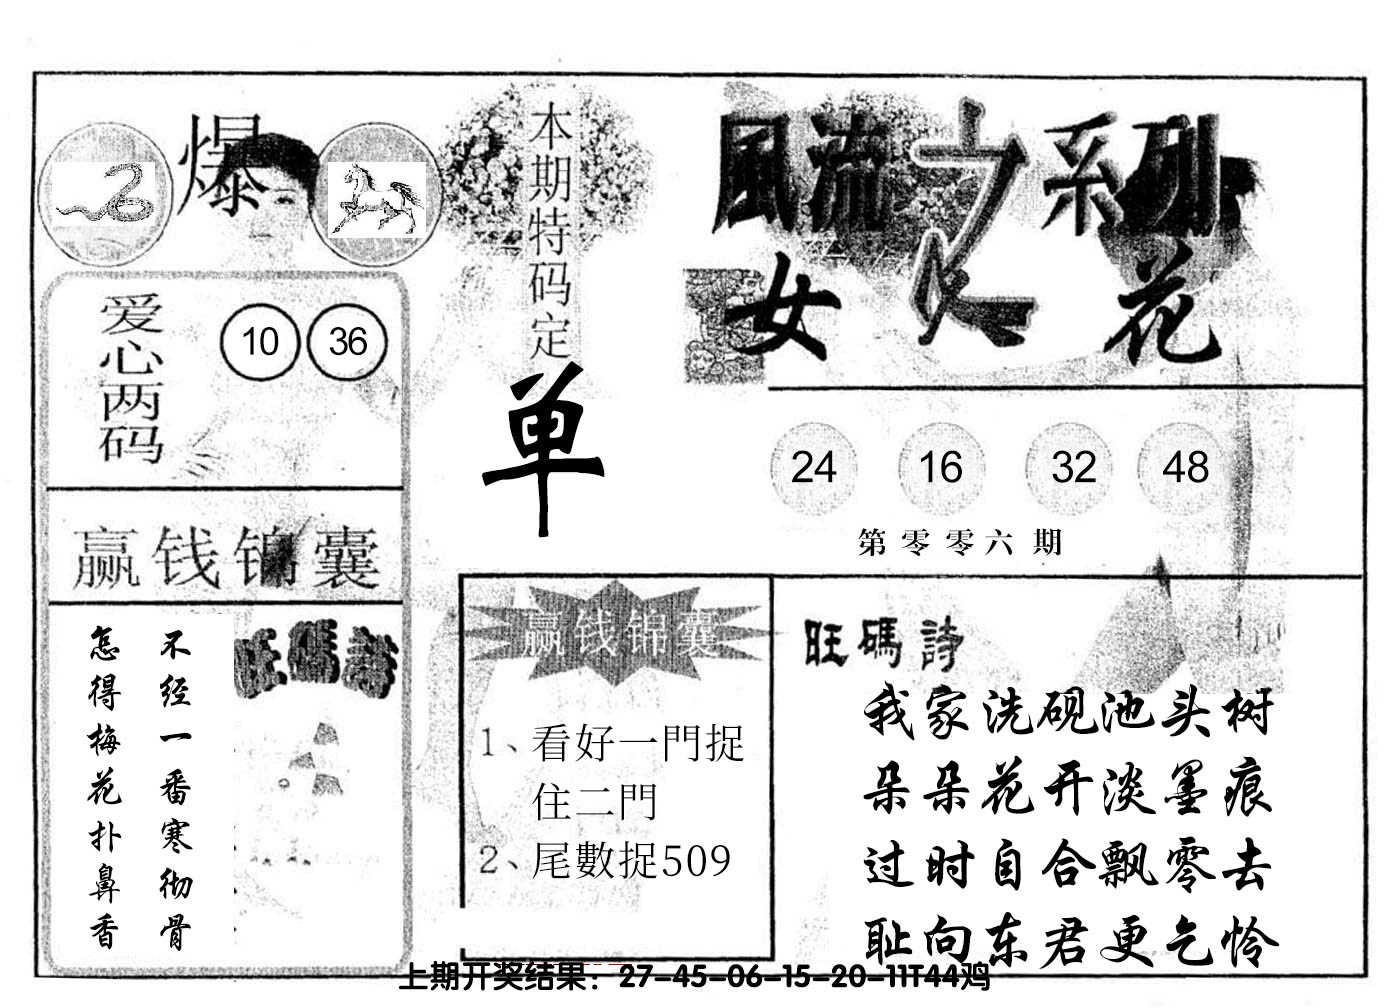 爆
本期特码定
单
風流之系列
女人花
爱心两码
10 36
24 16 32 48
第零零六期
赢钱锦囊
旺碼詩
不经一番寒彻骨
怎得梅花扑鼻香
赢钱锦囊
1、看好一門捉
住二門
2、尾數捉509
旺碼詩
我家洗砚池头树
朵朵花开淡墨痕
过时自合飘零去
耻向东君更乞怜
上期开奖结果：27-45-06-15-20-11T44鸡